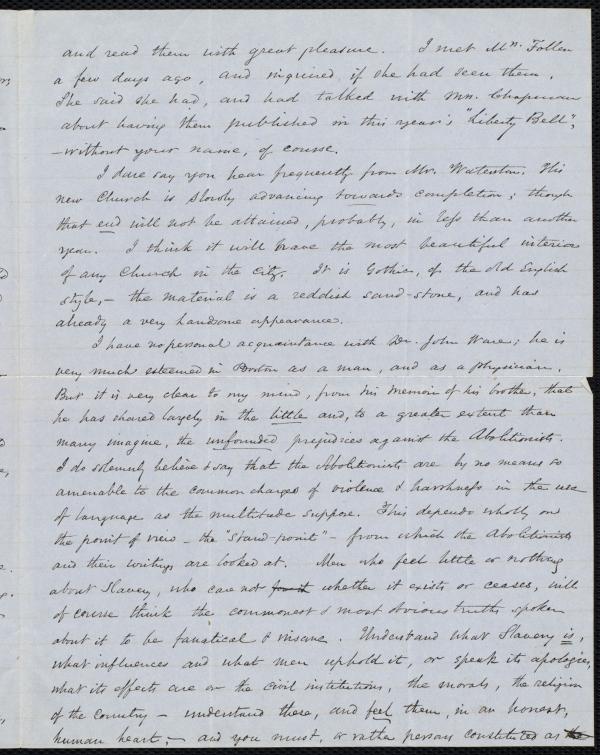 and read them with great pleasure. I met Mrs. Follen
a few days ago, and inquired if she had seen them.
She said she had, and had talked with Mrs. Chapman
about having them published in this year's "Liberty Bell",
—without your name, of course.
I dare say you hear frequently from Mr. Waterston. His
new Church is slowly advancing towards completion; though
that end will not be attained, probably, in less than another
year. I think it will have the most beautiful interior
of any Church in the city. It is Gothic, of the old English
style,— the material is a reddish sand-stone, and has
already a very handsome appearance.
I have no personal acquaintance with Dr. John Ware; he is
very much esteemed in Boston as a man, and as a physician.
But it is very clear to my mind, from his memoir of his brother, that
he has shared largely in the little and, to a greater extent than
many imagine, the unfounded prejudices against the Abolitionists.
I do solemnly believe & say that the Abolitionists are by no means so
amenable to the common charges of violence & harshness in the use
of language as the multitude suppose. This depends wholly on
the point of view – the "stand-point" – from which the Abolitionists
and their writings are looked at. Men who feel little or nothing
about Slavery, who care not whether it exists or ceases, will
of course think the commonest & most obvious truths spoken
about it to be fanatical & insane. Understand what Slavery is,
what influences and what men uphold it, or speak its apologies,
what its effects are on the civil institutions, the morals, the religion
of the Country – understand these, and feel them, in an honest,
human heart,— and you must, or rather persons constituted as the